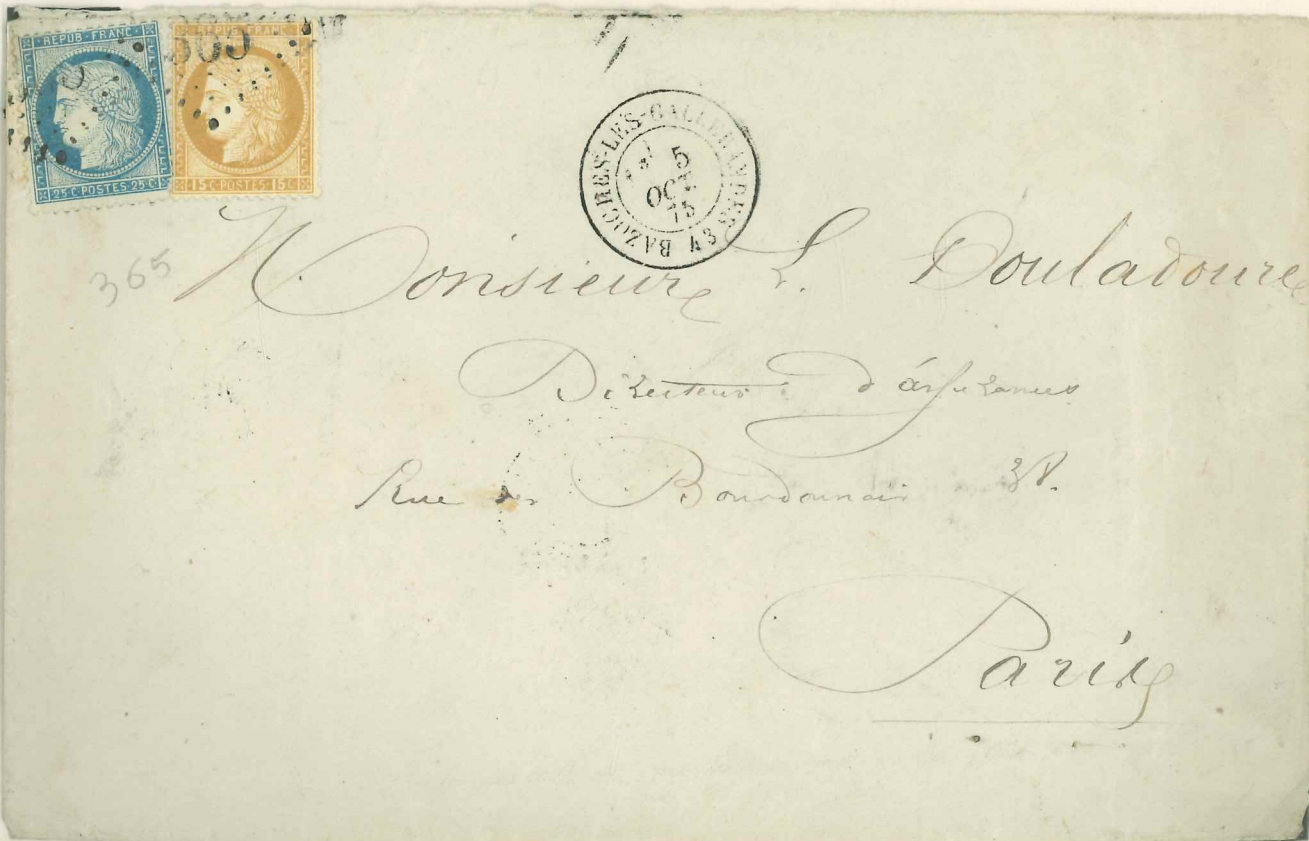 REPUB·FRANC·
25·C·POSTES·25·C
REPUB·FRANC·
15·C·POSTES·15·C
365
BAZOCHES-LES-GALLERANDES 43
5
OCT
75
365
Monsieur L. Douladoure
Directeur d'assurances
Rue des Bourdonnais 38.
Paris